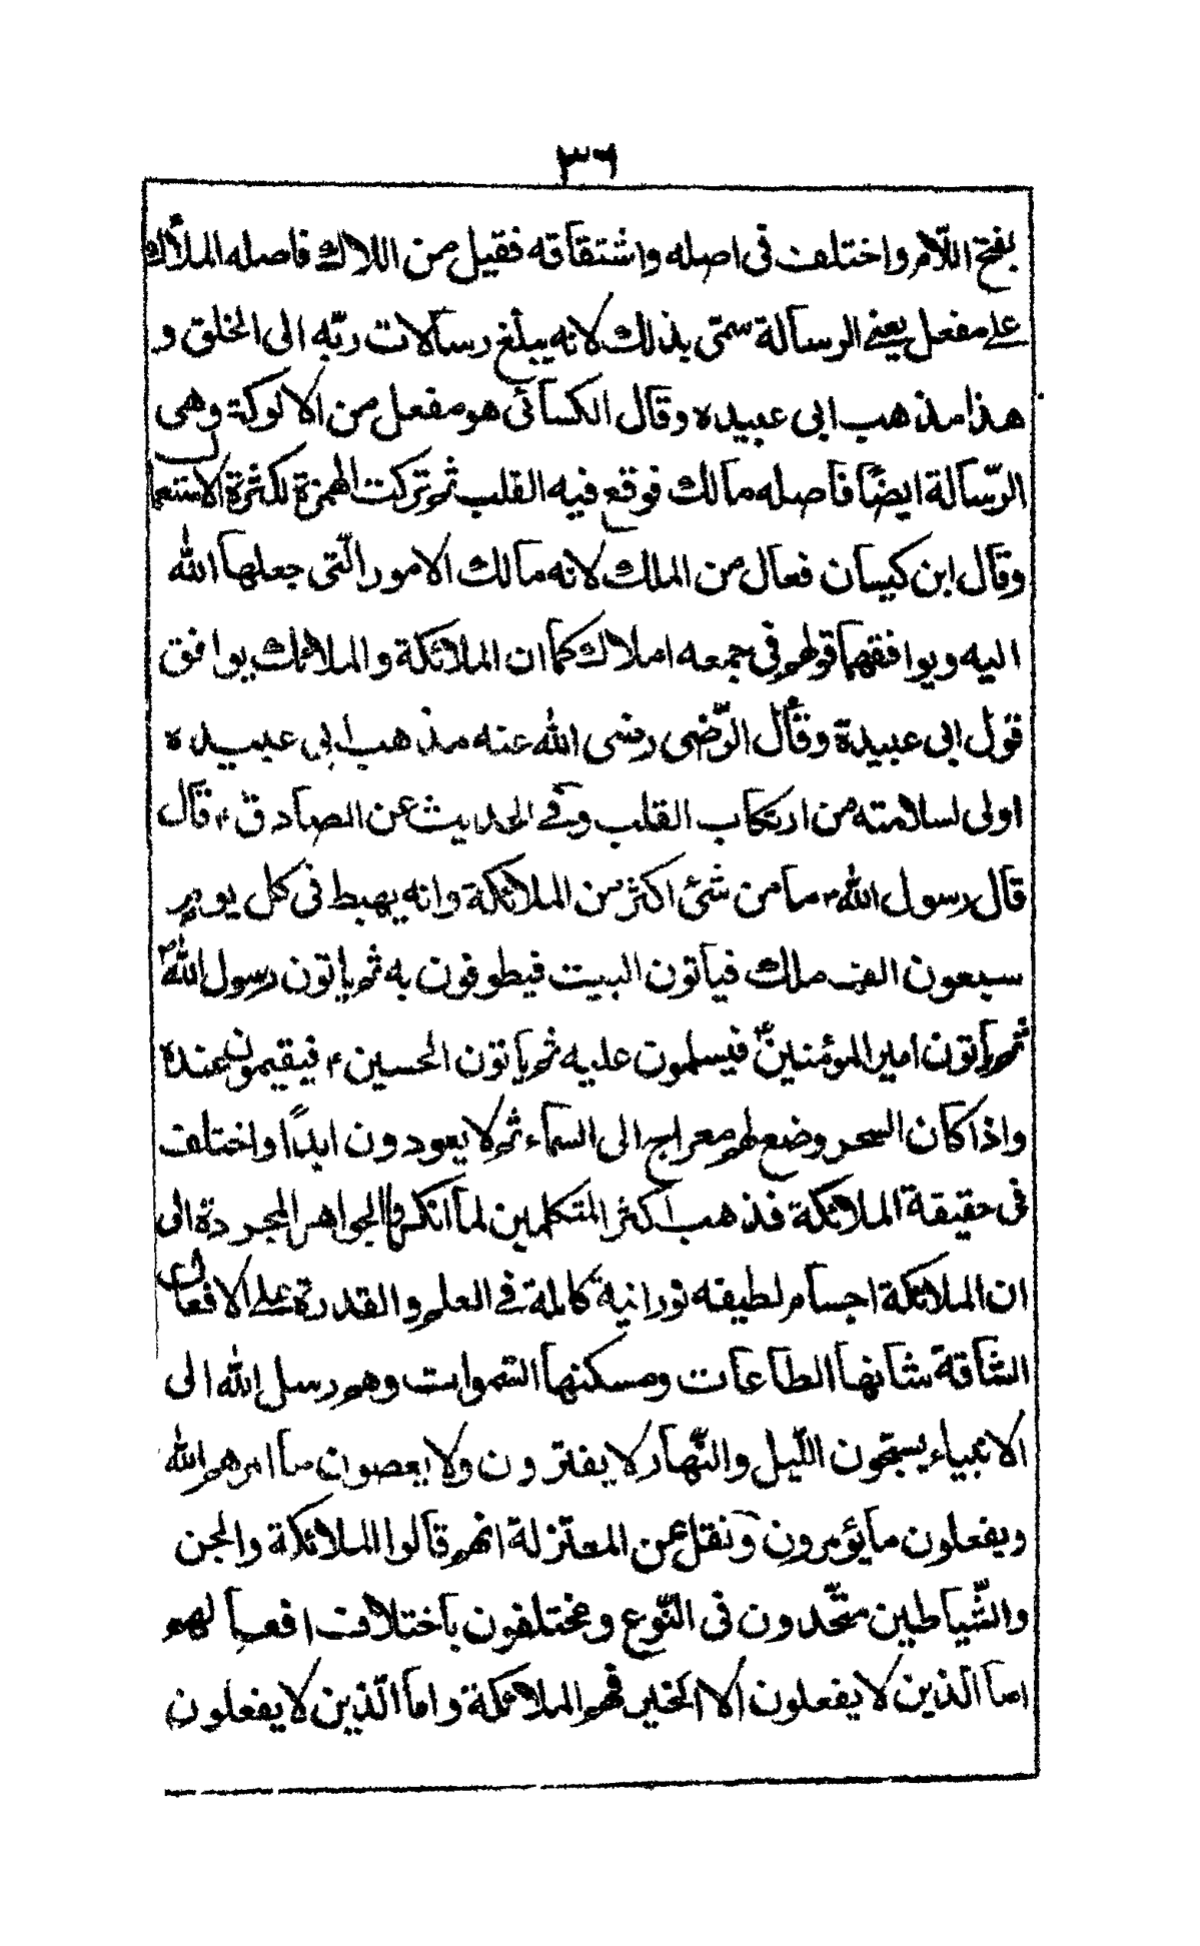 ٣٦
بفتح اللّام واختلف فى اصله واشتقاقه فقيل من اللاك فاصله الملأك
على مفعل يعنى الرسالة سمّى بذلك لانه يبلّغ رسالات ربّه الى الخلق و
هذا مذهب ابى عبيده وقال الكسائى هو مفعل من الالوكة وهى
الرّسالة ايضًا فاصله مالك فوقع فيه القلب ثم تركت الهمزة لكثرة الاستعمال
وقال ابن كيسان فعال من الملك لانه مالك الامور الّتى جعلها الله
اليه ويوافقهما قولهم فى جمعه املاك كما ان الملائكة والملائك يوافق
قول ابى عبيدة وقال الرّضى رضى الله عنه مذهب ابى عبيده
اولى لسلامته من ارتكاب القلب وفى الحديث عن الصادق ع قال
قال رسول الله ص ما من شئ اكثر من الملائكة وانه يهبط فى كل يوم
سبعون الف ملك فياتون البيت فيطوفون به ثم ياتون رسول الله ص
ثم ياتون امير المؤمنين ع فيسلمون عليه ثم ياتون الحسين ع فيقيمون عنده
واذا كان السحر وضع لهم معراج الى السماء ثم لا يعودون ابدًا واختلف
فى حقيقة الملائكة فذهب اكثر المتكلمين لما انكروا الجواهر المجردة الى
ان الملائكة اجسام لطيفه نورانية كاملة فى العلم والقدرة على الافعال
الشّاقة شانها الطاعات ومسكنها السّموات وهم رسل الله الى
الانبياء يسبّحون اللّيل والنّهار لا يفترون ولا يعصون ما امرهم الله
ويفعلون ما يؤمرون ونقل عن المعتزلة انهم قالوا الملائكة والجن
والشّياطين متّحدون فى النّوع ومختلفون باختلاف افعالهم
اما الذين لا يفعلون الا الخير فهم الملائكة واما الّذين لا يفعلون